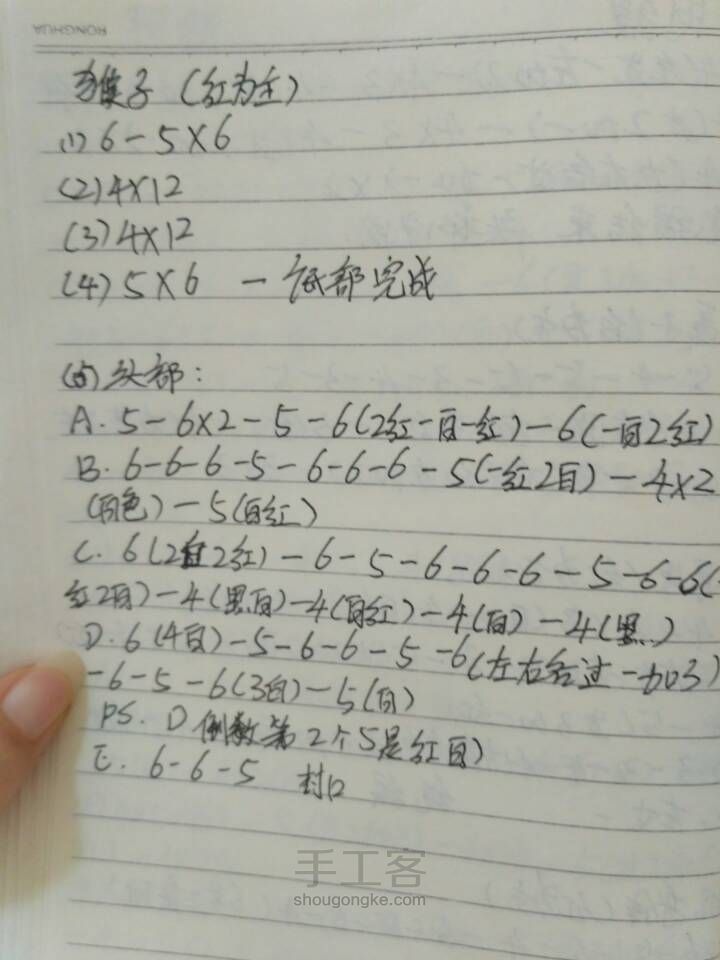 RONGHUA
猴子（红为主）
(1) 6-5×6
(2) 4×12
(3) 4×12
(4) 5×6 — 底部完成
(5) 头部：
A. 5-6×2-5-6(2红一白一红)-6(一白2红)
B. 6-6-6-5-6-6-6-5(一红2白)-4×2
(白色)-5(白红)
C. 6(2白2红)-6-5-6-6-6-5-6-6(
红2白)-4(黑白)-4(白红)-4(白)-4(黑..)
D. 6(4白)-5-6-6-5-6(左右各过一加3)
-6-5-6(3白)-5(白)
PS. D 倒数第2个5是红白)
E. 6-6-5 封口
手工客
shougongke.com